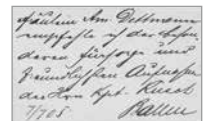 Fräulein Am. Dettmann
empfehle ich der beson-
deren Fürsorge und
freundlichen Aufnahme
des Herrn Kpt. Kuest
7/7 05 Ballin